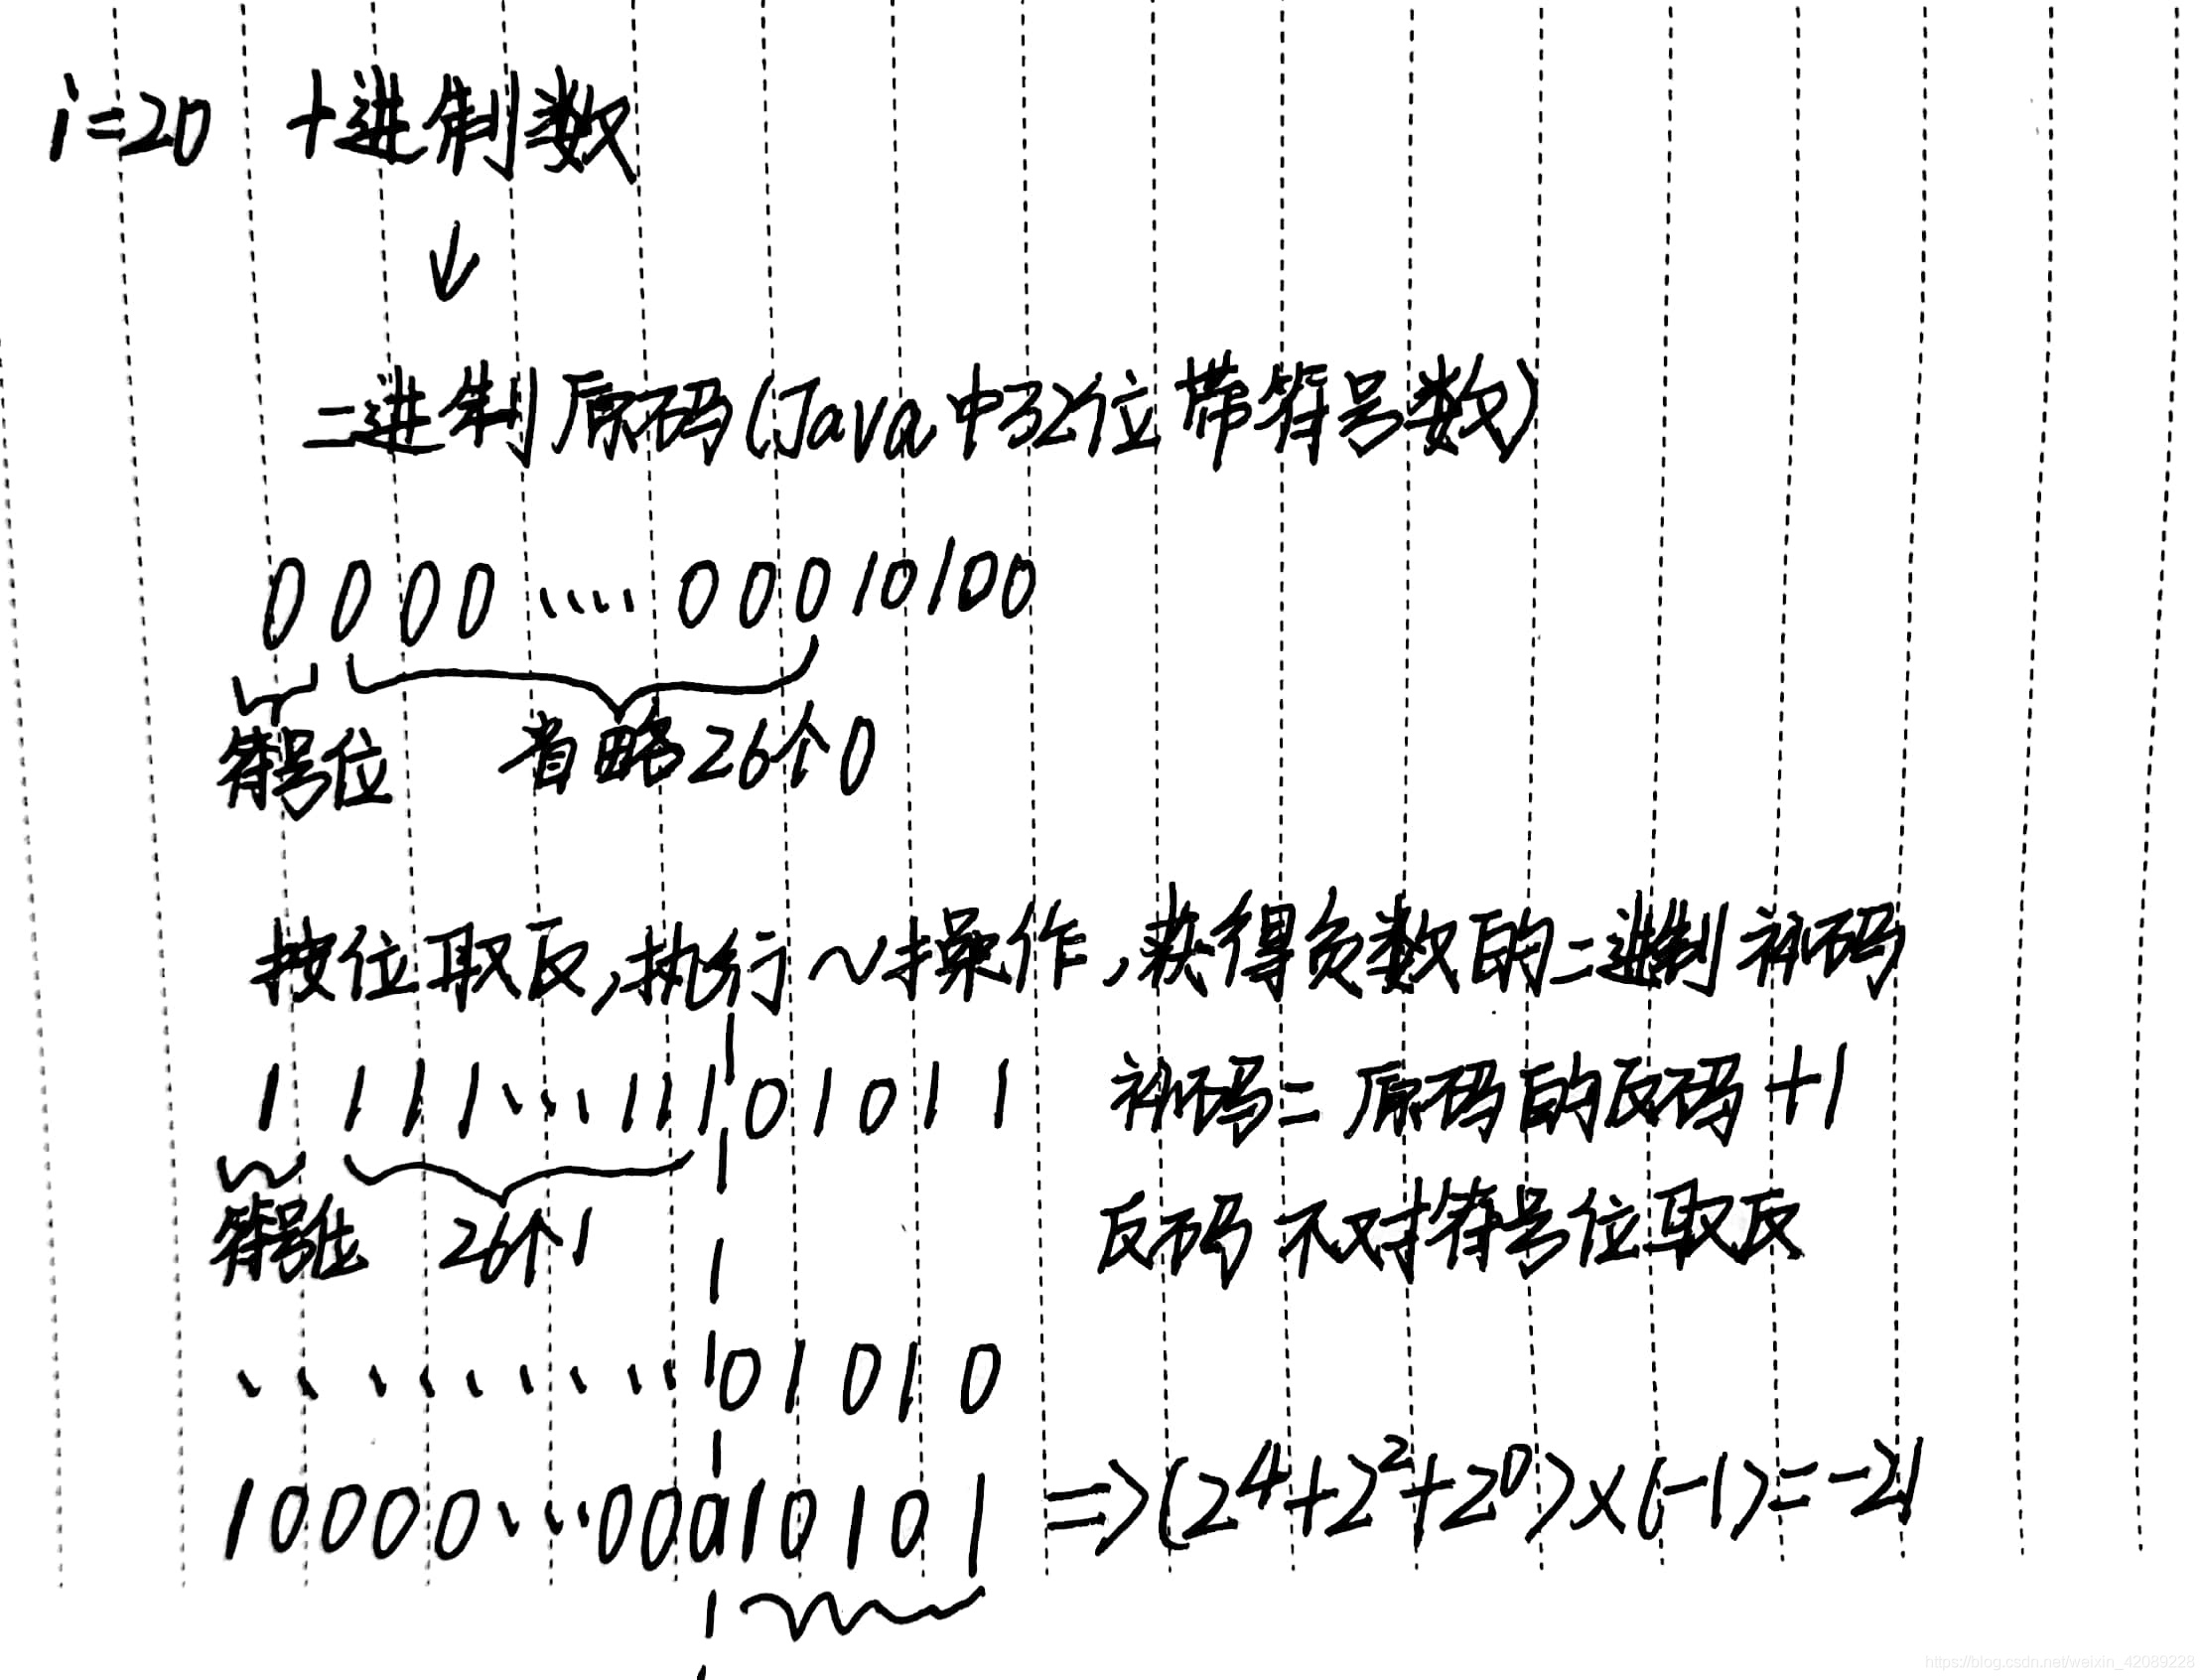 i=20 十进制数
↓
二进制原码(Java中32位带符号数)
0000.....00010100
符号位 省略26个0
按位取反,执行~操作,获得负数的二进制补码
1111.....11101011 补码=原码的反码+1
符号位 26个1 反码不对符号位取反
...........101010
10000.....00010101 =>(2⁴+2²+2⁰)×(-1)=-21
https://blog.csdn.net/weixin_42089228